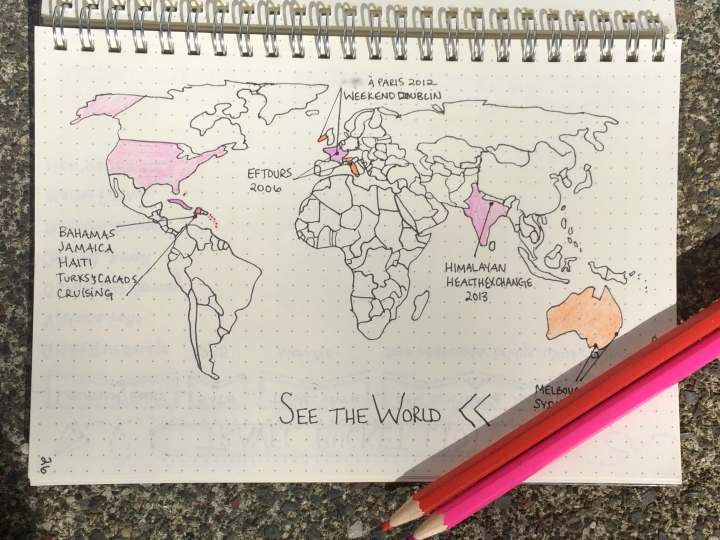 À PARIS 2012
WEEKEND DOUBLIN
EFTOURS
2006
BAHAMAS
JAMAICA
HAITI
TURKS & CACAOS
CRUISING
HIMALAYAN
HEALTHEXCHANGE
2013
SEE THE WORLD <<
26